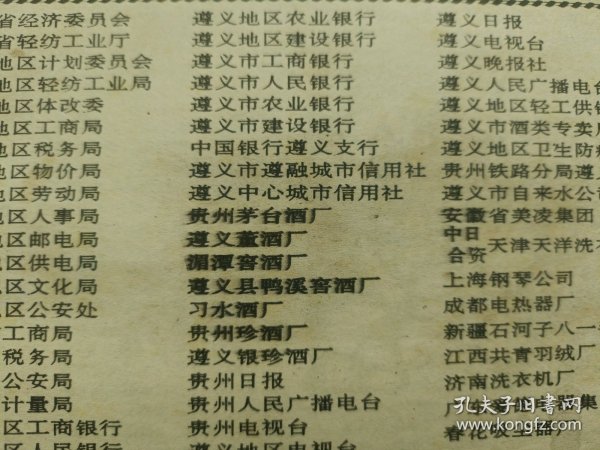 省经济委员会
省轻纺工业厅
地区计划委员会
地区轻纺工业局
地区体改委
地区工商局
地区税务局
地区物价局
地区劳动局
地区人事局
区邮电局
区供电局
区文化局
区公安处
工商局
税务局
公安局
计量局
区工商银行
区人民银行
遵义地区农业银行
遵义地区建设银行
遵义市工商银行
遵义市人民银行
遵义市农业银行
遵义市建设银行
中国银行遵义支行
遵义市遵融城市信用社
遵义中心城市信用社
贵州茅台酒厂
遵义董酒厂
湄潭窖酒厂
遵义县鸭溪窖酒厂
习水酒厂
贵州珍酒厂
遵义银珍酒厂
贵州日报
贵州人民广播电台
贵州电视台
遵义地区电视台
遵义日报
遵义电视台
遵义晚报社
遵义人民广播电台
遵义地区轻工供销
遵义市酒类专卖
遵义地区卫生防疫
贵州铁路分局遵
遵义市自来水公
安徽省美凌集团
中日合资天津天洋洗衣
上海钢琴公司
成都电热器厂
新疆石河子八一
江西共青羽绒厂
济南洗衣机厂
集
春花吸尘器厂
孔夫子旧书网